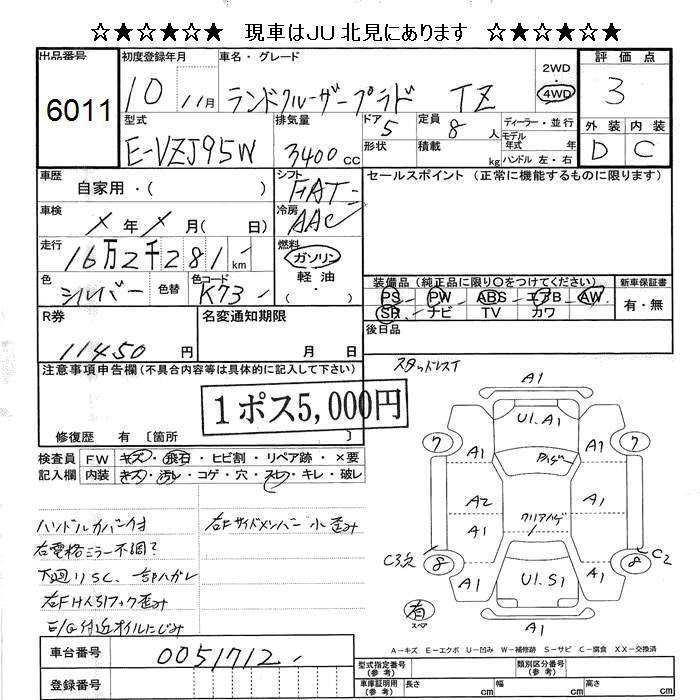 ☆★☆★☆★ 現車はJU北見にあります ☆★☆★☆★
出品番号
6011
初度登録年月
10 11月
車名・グレード
ランドクルーザープラド TZ
2WD
4WD
評価点
3
外装 内装
D C
型式
E-VZJ95W
排気量
3400cc
ドア 5
形状
定員 8人
積載 kg
ディーラー・並行
モデル年式 年
ハンドル 左・右
車歴
自家用・( )
シフト
FAT
冷房
AAC
セールスポイント (正常に機能するものに限ります)
車検
メ年メ月( 日)
走行
16万2千281km
燃料
ガソリン
軽油
・( )
色
シルバー
色替
色コード
K73
装備品 (純正品に限り○をつけてください)
PS PW ABS エアB AW
SR ナビ TV カワ
新車保証書
有・無
R券
11450円
名変通知期限
月 日
後日品
注意事項申告欄(不具合内容等は具体的に記入して下さい)
1ポス5,000円
修復歴 有 〔箇所 〕
スタッドレス
検査員記入欄
FW キズ・飛石・ヒビ割・リペア跡・×要
内装 キズ・汚レ・コゲ・穴・スレ・キレ・破レ
ハンドルカバー付
右電格ミラー不調?
下廻りSC、一部ハガレ
右Fけん引フック歪み
E/G付近オイルにじみ
右Fサイドメンバー小歪み
A1
U1.A1
7 A1 A1 7
A2 クリアハゲ A1
A1 A1
C3穴 8 8 C2
A1 U1.S1 A1
有
スペア
A1
A－キズ E－エクボ U－凹み W－補修跡 S－サビ C－腐食 XX－交換済
車台番号
0051712
登録番号
型式指定番号(参考)
類別区分番号(参考)
車庫証明用(参考) 長さ cm 幅 cm 高さ cm